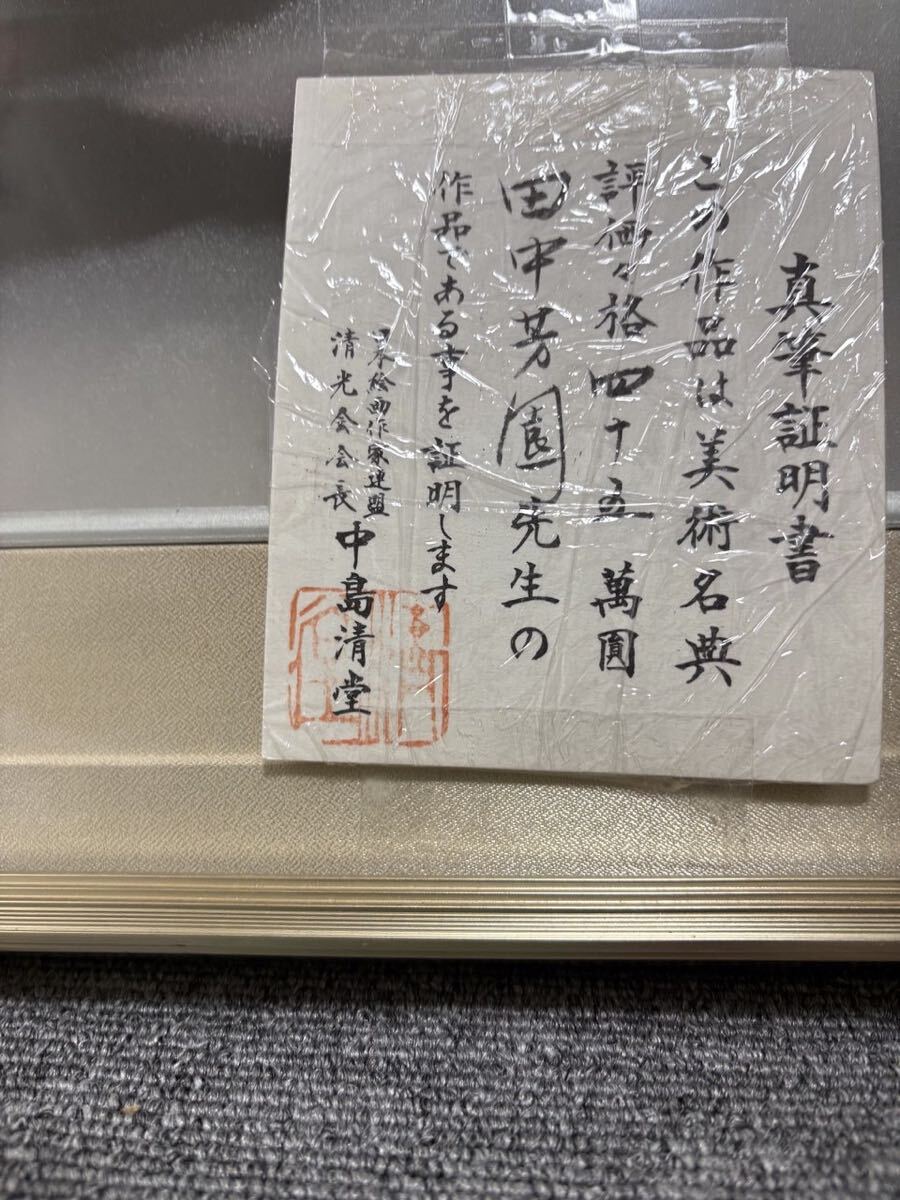 真筆証明書
この作品は美術名典
評価々格四十五萬圓
田中芳園先生の
作品である事を証明します
日本絵画作家連盟
清光会会長 中島清堂